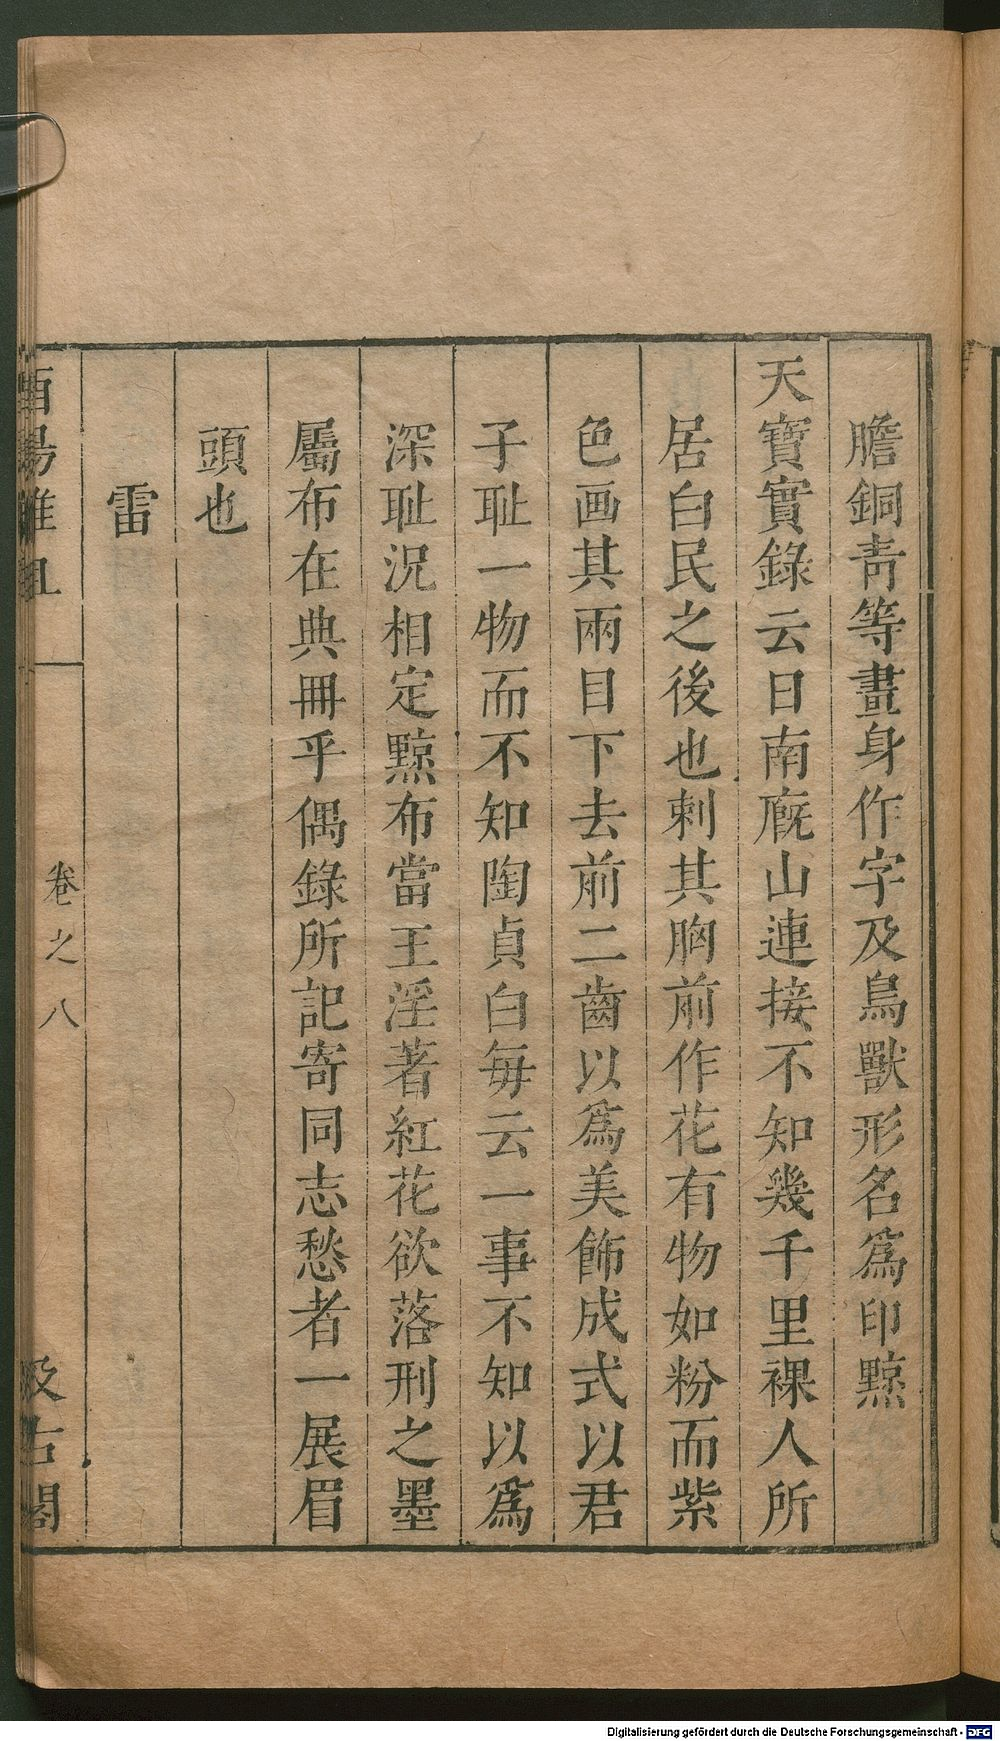 膽銅青等畫身作字及鳥獸形名爲印黥
天寶實錄云日南廐山連接不知幾千里裸人所
居白民之後也刺其胸前作花有物如粉而紫
色画其兩目下去前二齒以爲美飾成式以君
子耻一物而不知陶貞白毎云一事不知以爲
深耻況相定黥布當王淫著紅花欲落刑之墨
屬布在典冊乎偶錄所記寄同志愁者一展眉
頭也
雷
酉陽雜俎
卷之八
汲古閣
Digitalisierung gefördert durch die Deutsche Forschungsgemeinschaft - DFG